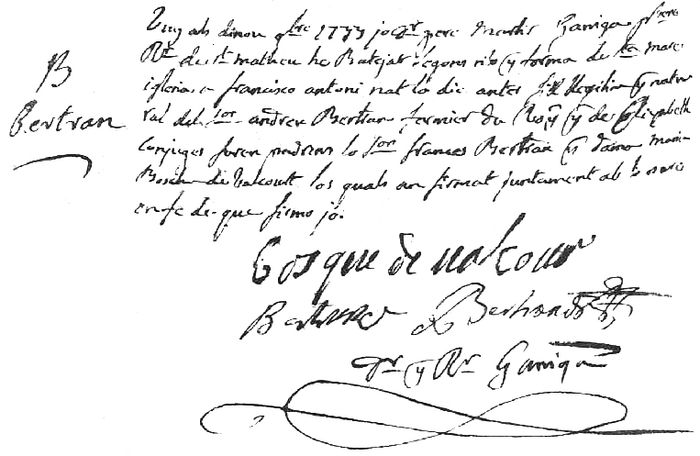 B
Bertran
Vuy als dinou 9bre 1773 jo Dr pere Martir Garriga prebere
Rr de St matheu he Batejat segons rito y forma de Sta mare
iglesia a francisco antoni nat lo die antes fill llegitim y natu
ral del Sor andreu Bertran fermier du Roy y de Elizabeth
Conjuges foren padrins lo Sor frances Bertran y dama maria
Bosch de valcourt los quals an firmat juntament ab
en fe de que firmo jo.
Bosque de valcour
Bertran Bertrand
Dr y Rr Garriga